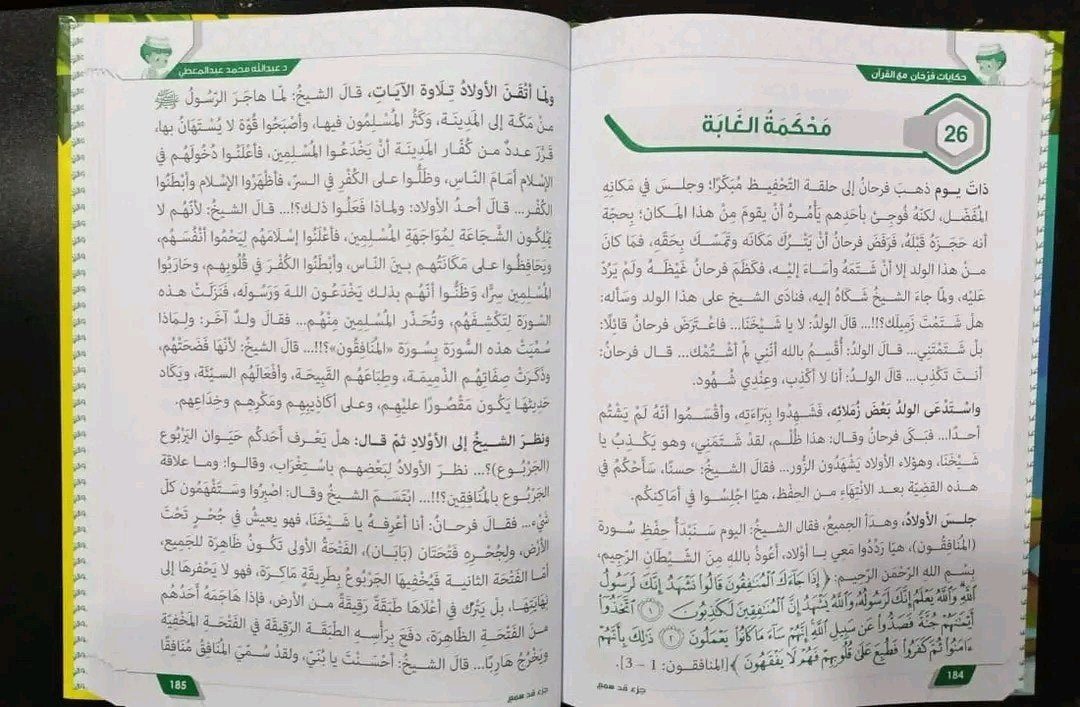 حكايات فرحان مع القرآن
26
مَحْكَمَةُ الغَابَة
ذاتَ يـوم ذهـبَ فرحانُ إلى حلقـة التَّحْفيـظ مُبَكِّرًا؛ وجلـسَ في مَكَانِهِ
المُفَضَّل، لكنَّهُ فُوجِئَ بأحَدِهم يَأْمُرهُ أنْ يقومَ مِنْ هذا المَكَان؛ بِحجَّة
أنه حَجَزَهُ قَبْلَهُ، فَرَفَضَ فرحانُ أنْ يَتْرُكَ مَكَانَه وتَمَسَّكَ بِحَقِّهِ، فمَا كانَ
منْ هذا الولد إلا أنْ شَتَمَهُ وأسَاءَ إليْه، فكَظَمَ فرحانُ غَيْظَهُ ولَمْ يَرُدَّ
عَليْه، ولمَّا جاءَ الشيخُ شَكَاهُ إليه، فنَادَى الشيخ على هذا الولد وسأله:
هلْ شَتَمْتَ زَمِيلَك؟!!... قالَ الولدُ: لا يا شَيْخَنَا... فاعْتَرَضَ فرحانُ قائلًا:
بلْ شَتَمْتَني... قال الولدُ: أُقْسِمُ بالله أنَّني لَمْ أشْتُمْك... قـال فرحانُ:
أنـتَ تَكْذِب... قالَ الولـدُ: أنا لا أكْذِب، وعِنْدِي شُهُود.
واسْتَدْعَى الولدُ بَعْضَ زُمَلائِه، فَشَهِدُوا بِبَرَاءَتِه، وأقْسَمُوا أنَّهُ لَمْ يَشْتُم
أحدًا... فبَكَى فرحانُ وقال: هذا ظُلْم، لقدْ شَتَمَني، وهو يَكْذِبُ يا
شَيْخَنَا، وهؤلاء الأولاد يَشْهَدُون الزُّور... فقالَ الشيخُ: حسنًا، سَأَحْكُمُ في
هذه القضيَّة بعد الانْتِهَاء من الحِفْظ، هيَّا اجْلِسُوا في أمَاكِنِكُم.
جلـسَ الأولادُ، وهـدَأَ الجميعُ، فقال الشيخُ: اليوم سَنَبْدَأُ حِفْظِ سُورة
(المُنَافِقُون)، هيَّا رَدِّدُوا مَعِي يـا أوْلاد، أعُوذُ باللهِ مِنَ الشَّيْطَانِ الرَّجِيم،
بِسْمِ الله الرَّحْمَنِ الرَّحِيم: ﴿ إِذَا جَآءَكَ ٱلْمُنَـٰفِقُونَ قَالُوا۟ نَشْهَدُ إِنَّكَ لَرَسُولُ
ٱللَّهِ وَٱللَّهُ يَعْلَمُ إِنَّكَ لَرَسُولُهُۥ وَٱللَّهُ يَشْهَدُ إِنَّ ٱلْمُنَـٰفِقِينَ لَكَـٰذِبُونَ ١ ٱتَّخَذُوٓا۟
أَيْمَـٰنَهُمْ جُنَّةً فَصَدُّوا۟ عَن سَبِيلِ ٱللَّهِ إِنَّهُمْ سَآءَ مَا كَانُوا۟ يَعْمَلُونَ ٢ ذَٰلِكَ بِأَنَّهُمْ
ءَامَنُوا۟ ثُمَّ كَفَرُوا۟ فَطُبِعَ عَلَىٰ قُلُوبِهِمْ فَهُمْ لَا يَفْقَهُونَ ﴾ [المنافقون: 1 – 3].
184
جزء قد سمع
د عبدالله محمد عبدالمعطي
ولمَّا أتْقَـنَ الأولادُ تِـلَاوةَ الآيَـات، قـالَ الشيخُ: لمَّا هاجَـرَ الرَّسُولُ ﷺ
منْ مَكَّة إلى المَدِينَة، وكَثُرَ المُسْلِمُون فيهـا، وأصْبَحُوا قُوَّة لا يُسْتَهَانُ بها،
قَرَّرَ عددٌ مـن كُفَّـار المَدِينـة أنْ يَخْدَعُوا المُسْلِمين، فأعْلَنُوا دُخُولَهُم في
الإسْلام أمَامَ النَّاس، وظَلُّوا على الكُفْرِ في السِّر، فأظْهَرُوا الإسْلام وأبْطَنُوا
الكُفْر... قالَ أحدُ الأولاد: ولماذا فَعَلُوا ذلك؟!... قالَ الشيخُ: لأنَّهُم لا
يَمْلِكُون الشَّجَاعَة لِمُوَاجَهَة المُسْلِمين، فأعْلَنُوا إسْلامَهُم لِيَحْمُوا أنْفُسَهُم،
ويُحَافِظُوا على مَكَانَتِهُم بينَ النَّاس، وأبْطَنُوا الكُفْرَ في قُلُوبِهِم، وحَارَبُوا
المُسْلِمين سِرًّا، وظَنُّوا أنَّهُم بذلـك يَخْدَعُـون اللهَ وَرَسُولَه، فَنَزَلَتْ هذه
السُّورَة لِتَكْشِفَهُم، وتُحَـذِّر المُسْلِمين مِنْهُم... فقالَ ولدٌ آخَـر: ولمَاذا
سُمِّيَتْ هذه السُّورَة بسُورَة «المُنَافِقُون»؟!!... قالَ الشيخُ: لأنَّهَا فَضَحَتْهُم،
وذَكَرَتْ صِفَاتِهُم الذَّمِيمَة، وطِبَاعَهُم القَبِيحَة، وأفْعَالَهُم السيِّئَة، ويَكَاد
حَدِيثُهَا يَكُون مَقْصُورًا عليْهِم، وعلى أكَاذِيبِهِم ومَكْرِهِم وخِدَاعِهِم.
ونظَرَ الشيخُ إلى الأوْلاد ثمَّ قال: هلْ يَعْرف أحَدُكُم حَيَوان اليَرْبُوع
(الجَرْبُوع)؟... نظرَ الأولادُ لِبَعْضِهِم باسْتَغْرَاب، وقالـوا: ومـا علاقة
الجَرْبُوعِ بالمُنَافِقِين؟!!... ابْتَسَمَ الشيخُ وقال: اصْبِرُوا وسَتَفْهَمُون كلَّ
شَيْء... فقـالَ فرحـانُ: أنـا أعْرِفـهُ يـا شَيْخَنَا، فهو يعيشُ في جُحْـرٍ تَحْتَ
الأرْض، ولِجُحْرِهِ فَتْحَتَان (بَابَان)، الفَتْحَةُ الأولى تَكُونُ ظَاهِرَة للجَمِيع،
أمَّا الفَتْحَة الثانيـة فَيُخْفِيهَا الجَرْبُوع بطَرِيقَةٍ مَاكِرَة، فهو لا يَحْفِرهَا إلى
نِهَايَتِهَـا، بل يَتْرُك في أعْلَاهَا طَبَقَةً رَقِيقَةً مـن الأرض، فإذا هَاجَمَهُ أحَدُهُم
مِنَ الفَتْحَـة الظَّاهِرَة، دفَعَ بِرَأْسِهِ الطَّبَقَة الرَّقِيقَة في الفَتْحَة المَخْفِيَّة
ويَخْرُجُ هَارِبًا... قالَ الشيخُ: أحْسَنْتَ يا بُنَيَّ، ولقدْ سُمِّيَ المُنَافِقُ مُنَافِقًا
185
جزء قد سمع